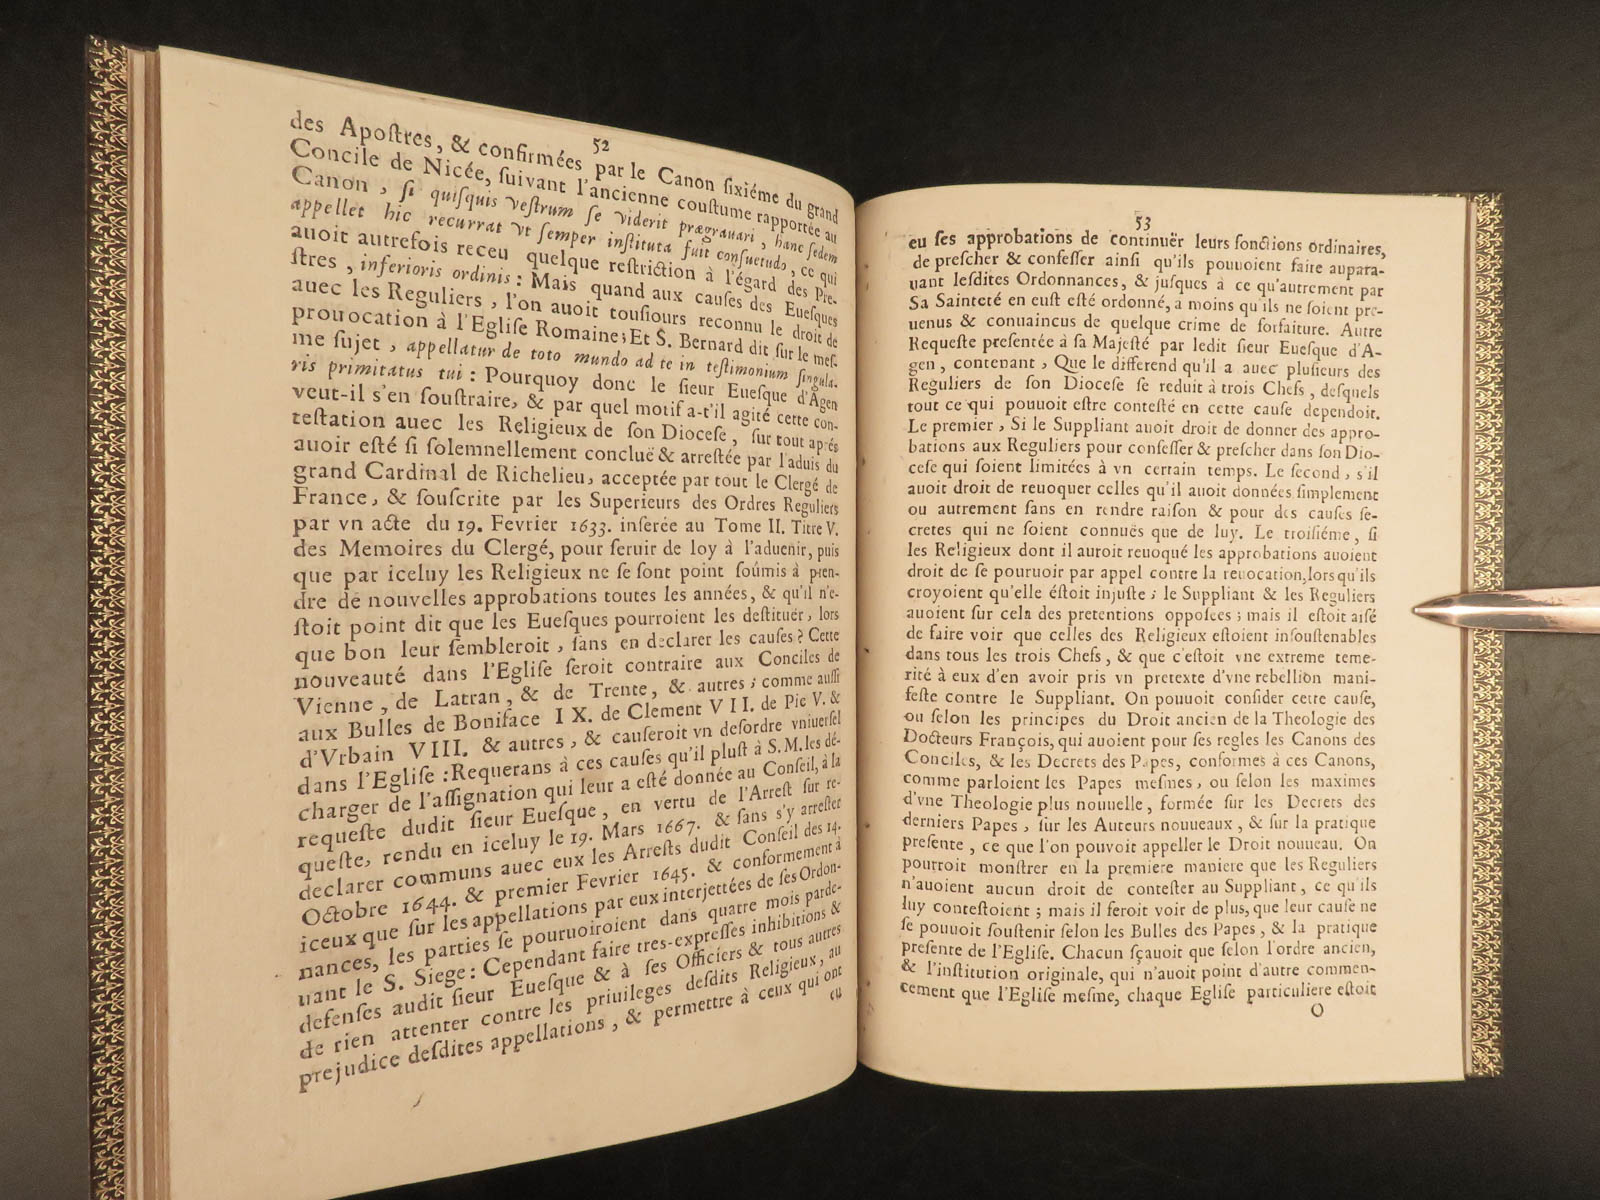 52
des Apoſtres, & confirmées par le Canon ſixiéme du grand
Concile de Nicée, ſuivant l'ancienne couſtume rapportée au
Canon, ſi quiſquis veſtrum ſe viderit prægrauari, hanc ſedem
appellet hic recurrat vt ſemper inſtituta fuit conſuetudo, ce qui
auoit autrefois receu quelque reſtriction à l'égard des Pre-
ſtres, inferioris ordinis : Mais quand aux cauſes des Eueſques
auec les Reguliers, l'on auoit touſiours reconnu le droit de
prouocation à l'Egliſe Romaine; Et S. Bernard dit ſur le meſ-
me ſujet, appellatur de toto mundo ad te in teſtimonium ſingula-
ris primitatus tui : Pourquoy donc le ſieur Eueſque d'Agen
veut-il s'en ſouſtraire, & par quel motif a-t'il agité cette con-
teſtation auec les Religieux de ſon Dioceſe, ſur tout aprés
auoir eſté ſi ſolemnellement concluë & arreſtée par l'aduis du
grand Cardinal de Richelieu, acceptée par tout le Clergé de
France, & ſouſcrite par les Superieurs des Ordres Reguliers
par vn acte du 19. Fevrier 1633. inſerée au Tome II. Titre V.
des Memoires du Clergé, pour ſeruir de loy à l'aduenir, puis
que par iceluy les Religieux ne ſe ſont point ſoûmis à pren-
dre de nouvelles approbations toutes les années, & qu'il n'e-
ſtoit point dit que les Eueſques pourroient les deſtituër, lors
que bon leur ſembleroit, ſans en declarer les cauſes ? Cette
nouveauté dans l'Egliſe ſeroit contraire aux Conciles de
Vienne, de Latran, & de Trente, & autres ; comme auſſi
aux Bulles de Boniface IX. de Clement VII. de Pie V. &
d'Vrbain VIII. & autres, & cauſeroit vn deſordre vniuerſel
dans l'Egliſe : Requerans à ces cauſes qu'il pluſt à S. M. les dé-
charger de l'aſſignation qui leur a eſté donnée au Conſeil, à la
requeſte dudit ſieur Eueſque, en vertu de l'Arreſt ſur re-
queſte, rendu en iceluy le 19. Mars 1667. & ſans s'y arreſter
declarer communs auec eux les Arreſts dudit Conſeil des 14.
Octobre 1644. & premier Fevrier 1645. & conformement à
iceux que ſur les appellations par eux interjettées de ſes Ordon-
nances, les parties ſe pouruoiroient dans quatre mois parde-
uant le S. Siege : Cependant faire tres-expreſſes inhibitions &
defenſes audit ſieur Eueſque & à ſes Officiers & tous autres
de rien attenter contre les priuileges deſdits Religieux, au
prejudice deſdites appellations, & permettre à ceux qui ont
eu
53
eu ſes approbations de continuër leurs fonctions ordinaires,
de preſcher & confeſſer ainſi qu'ils pouuoient faire aupara-
uant leſdites Ordonnances, & juſques à ce qu'autrement par
Sa Sainteté en euſt eſté ordonné, à moins qu'ils ne ſoient pre-
uenus & conuaincus de quelque crime de forfaiture. Autre
Requeſte preſentée à ſa Majeſté par ledit ſieur Eueſque d'A-
gen, contenant, Que le differend qu'il a auec pluſieurs des
Reguliers de ſon Dioceſe ſe reduit à trois Chefs, deſquels
tout ce qui pouuoit eſtre conteſté en cette cauſe dependoit.
Le premier, Si le Suppliant auoit droit de donner des appro-
bations aux Reguliers pour confeſſer & preſcher dans ſon Dio-
ceſe qui ſoient limitées à vn certain temps. Le ſecond, s'il
auoit droit de reuoquer celles qu'il auoit données ſimplement
ou autrement ſans en rendre raiſon & pour des cauſes ſe-
cretes qui ne ſoient connuës que de luy. Le troiſiéme, ſi
les Religieux dont il auroit reuoqué les approbations auoient
droit de ſe pouruoir par appel contre la reuocation, lors qu'ils
croyoient qu'elle éſtoit injuſte ; le Suppliant & les Reguliers
auoient ſur cela des pretentions oppoſees ; mais il eſtoit aiſé
de faire voir que celles des Religieux eſtoient inſouſtenables
dans tous les trois Chefs, & que c'eſtoit vne extreme teme-
rité à eux d'en avoir pris vn pretexte d'vne rebellion mani-
feſte contre le Suppliant. On pouuoit conſider cette cauſe,
ou ſelon les principes du Droit ancien de la Theologie des
Docteurs François, qui auoient pour ſes regles les Canons des
Conciles, & les Decrets des Papes, conformes à ces Canons,
comme parloient les Papes meſmes, ou ſelon les maximes
d'vne Theologie plus nouuelle, formée ſur les Decrets des
derniers Papes, ſur les Auteurs nouueaux, & ſur la pratique
preſente, ce que l'on pouvoit appeller le Droit nouueau. On
pourroit monſtrer en la premiere maniere que les Reguliers
n'auoient aucun droit de conteſter au Suppliant, ce qu'ils
luy conteſtoient ; mais il feroit voir de plus, que leur cauſe ne
ſe pouuoit ſouſtenir ſelon les Bulles des Papes, & la pratique
preſente de l'Egliſe. Chacun ſçauoit que ſelon l'ordre ancien,
& l'inſtitution originale, qui n'auoit point d'autre commen-
cement que l'Egliſe meſme, chaque Egliſe particuliere eſtoit
O